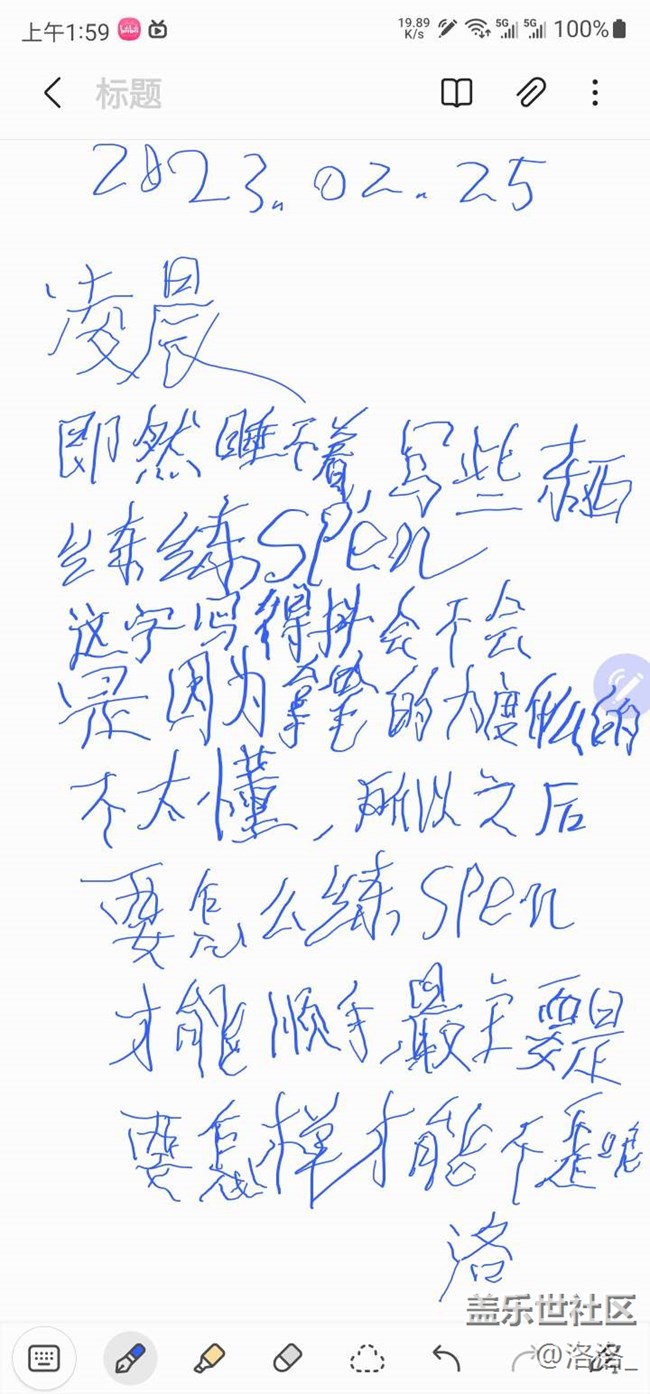 上午1:59
19.89
K/s
5G 5G 100%
标题
2023.02.25
凌晨
即然睡不着,写些
练练SPen
这字写得抖会不会
是因为拿笔的力度什么的
不太懂,所以之后
要怎么练SPen
才能顺手,最主要是
要怎样才能不歪
洛
盖乐世社区
@洛洛_